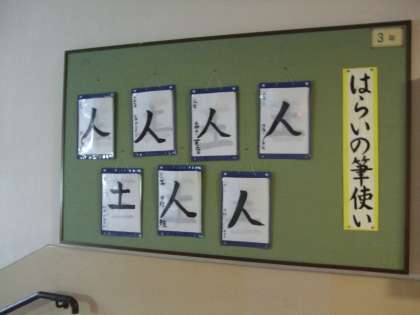 3年
はらいの筆使い
人
人
人
人
土
人
人